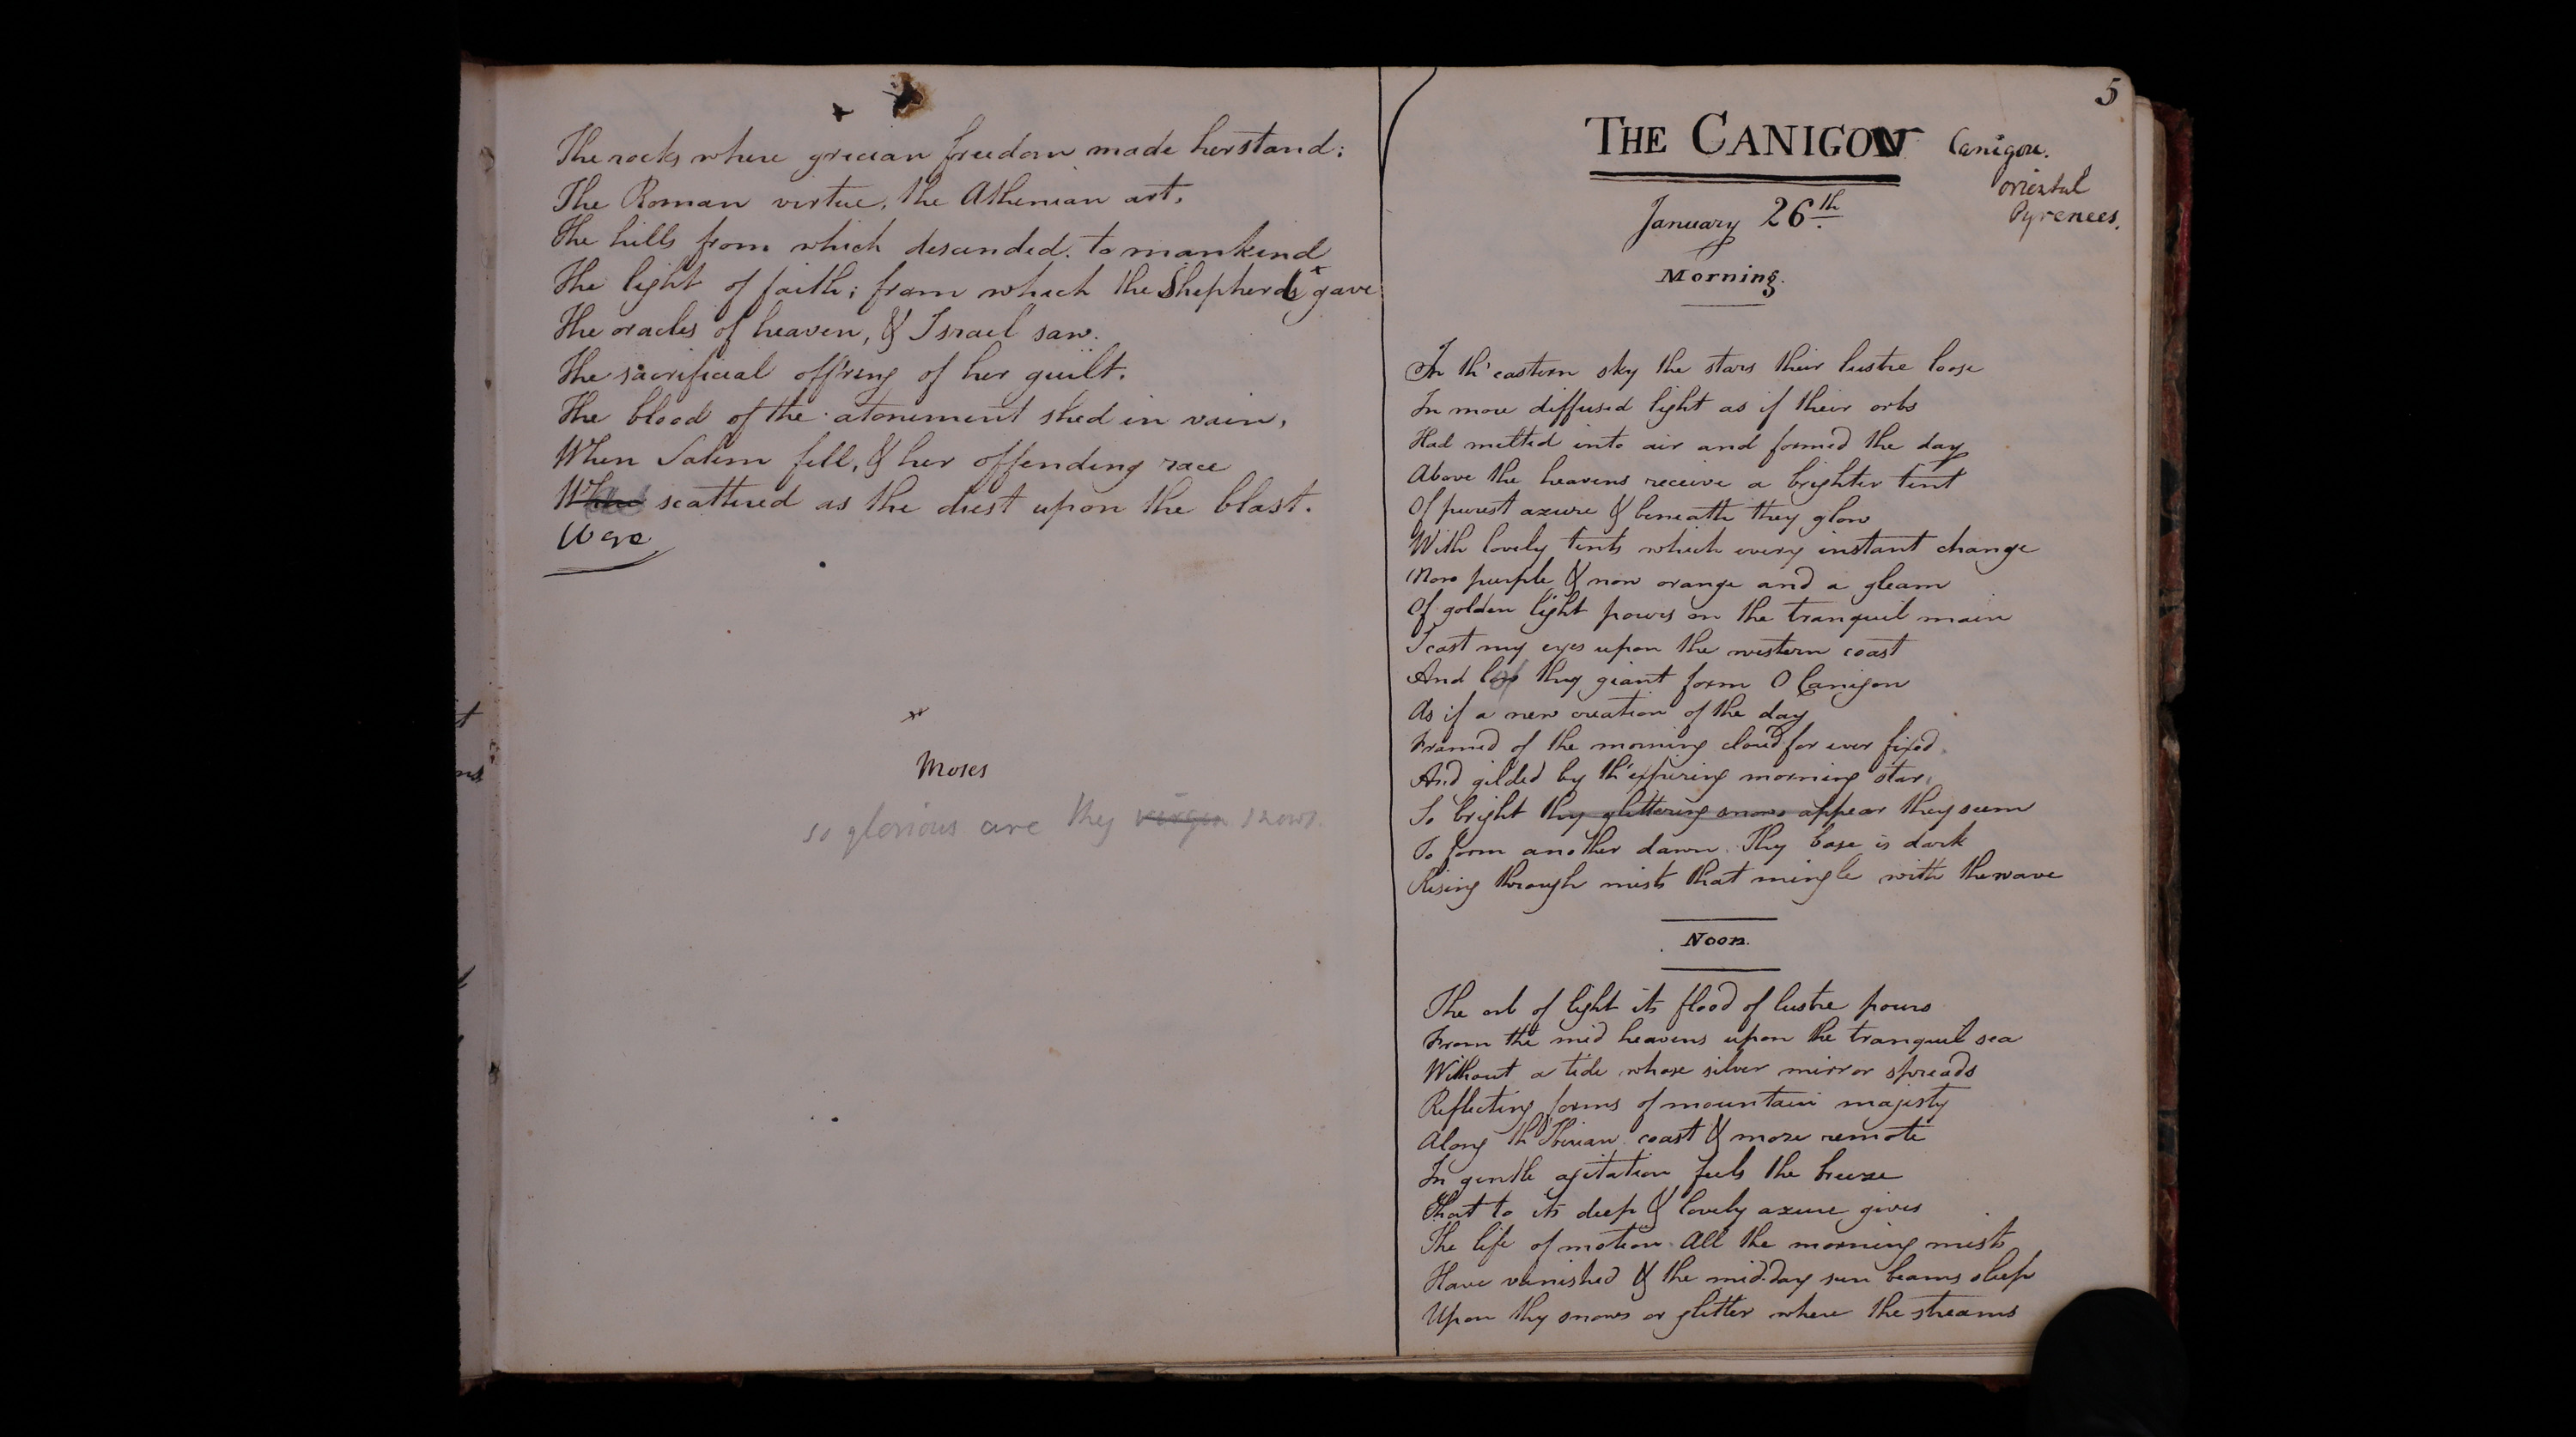 The rocks where grecian freedom made her stand;
The Roman virtue, the Athenian art,
The hills from which descended to mankind
The light of faith; from which the Shepherds x gave
The oracles of heaven, & Israel saw.
The sacrificial off'ring of her guilt.
The blood of the atonement shed in vain,
When Salem fell, & her offending race
scattered as the dust upon the blast.
Were
x
Moses
so glorious are thy virgin snows.
5
THE CANIGON Canigou.
oriental
Pyrenees.
January 26th
Morning.
In th' eastern sky the stars their lustre loose
In more diffused light as if their orbs
Had melted into air and formed the day
Above the heavens receive a brighter tint
Of purest azure & beneath they glow
With lovely tints which every instant change
Now purple & now orange and a gleam
Of golden light pours on the tranquil main
I cast my eyes upon the western coast
And lo thy giant form O Canigon
As if a new creation of the day
Framed of the morning cloud for ever fixed
And gilded by th' expiring morning star,
So bright thy glittering snows appear they seem
To form another dawn. Thy base is dark
Rising through mists that mingle with the wave
Noon.
The orb of light its flood of lustre pours
From the mid heavens upon the tranquil sea
Without a tide whose silver mirror spreads
Reflecting forms of mountain majesty
Along th' Iberian coast & more remote
In gentle agitation feels the breeze
That to its deep & lovely azure gives
The life of motion. All the morning mists
Have vanished & the mid-day sun beams sleep
Upon thy snows or glitter where the streams